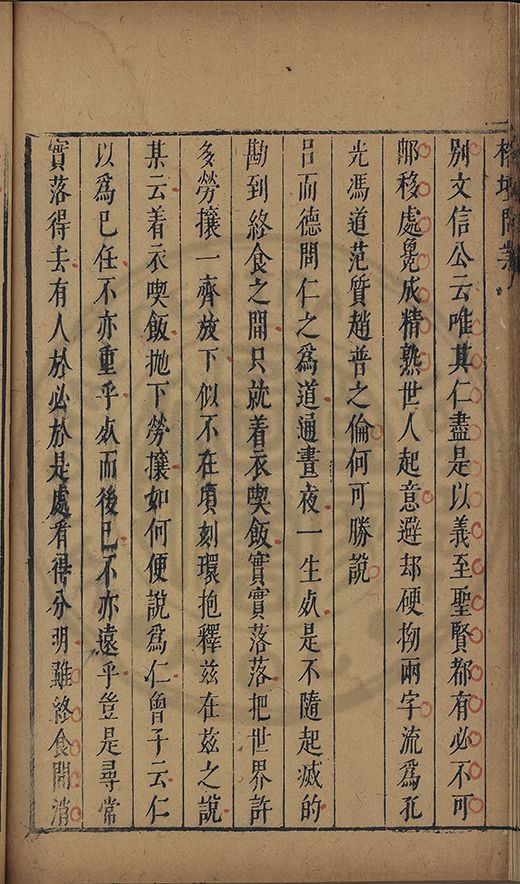 榕壇問業
別文信公云唯其仁盡是以義至聖賢都有必不可
那移處覺成精熟世人起意避却硬拗兩字流爲孔
光馮道范質趙普之倫何可勝說
呂而德問仁之爲道通晝夜一生死是不隨起滅的
勘到終食之間只就着衣喫飯實實落落把世界許
多勞攘一齊放下似不在頃刻環抱釋兹在兹之說
某云着衣喫飯抛下勞攘如何便說爲仁曾子云仁
以爲巳任不亦重乎死而後巳不亦遠乎豈是尋常
實落得去有人於必於是處看得分明雖終食間消